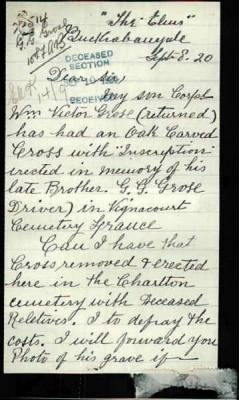 "The Elms"
Buckrabanyule
Sept 8. 20
DECEASED
SECTION
RECEIVED
Dear Sir,
My son Corpl
Wm Victor Grose (returned)
has had an Oak Carved
Cross with "Inscription"
erected in memory of his
late Brother. G. G. Grose
Driver) in Vignacourt
Cemetery France
Can I have that
Cross removed & erected
here in the Charlton
cemetery with Deceased
Reletives. I to defray the
costs. I will forward you
Photo of his grave if